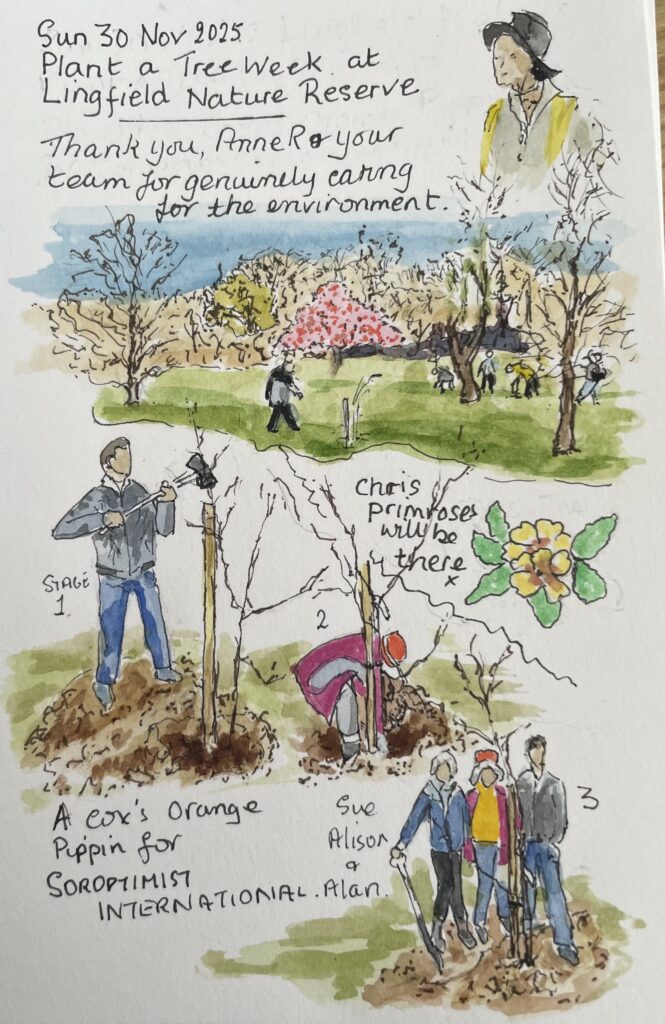 Sun 30 Nov 2025
Plant a Tree Week at
Lingfield Nature Reserve
Thank you, Anne R & your
team for genuinely caring
for the environment.
Chris
primroses
will be
there
x
STAGE
1
2
3
A Cox's Orange
Pippin for
SOROPTIMIST
INTERNATIONAL.
Sue
Alison
&
Alan.